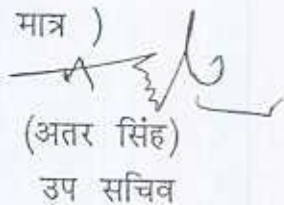 मात्र )
(अतर सिंह)
उप सचिव